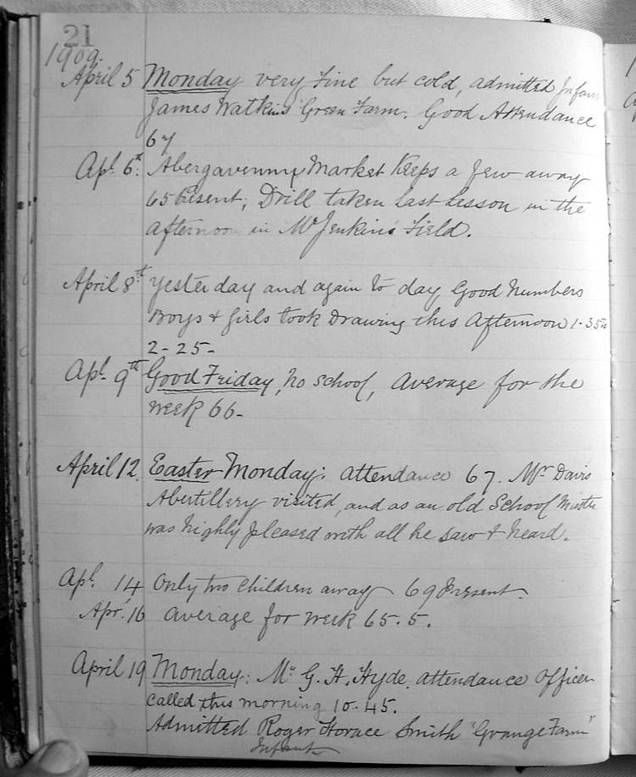 21
1909.
April 5 Monday very fine but cold, admitted Infant
James Watkins Green Farm. Good Attendance
67
Apl. 6th. Abergavenny Market keeps a few away
65 Present, Drill taken last lesson in the
afternoon in Mr Jenkins Field.
April 8th yesterday and again to day, Good Numbers
Boys & Girls took Drawing this Afternoon 1-35 to
2-25-
Apl. 9th Good Friday, no school, average for the
week 66-
April 12. Easter Monday: attendance 67. Mr Davis
Abertillery visited, and as an old School
was highly pleased with all he saw & heard.
Apl. 14 Only two children away 69 Present.
Apr. 16 average for week 65.5.
April 19 Monday: Mr G. H. Hyde, attendance Officer
called this morning 10-45.
Admitted Roger Horace Smith "Grange Farm"
Infant